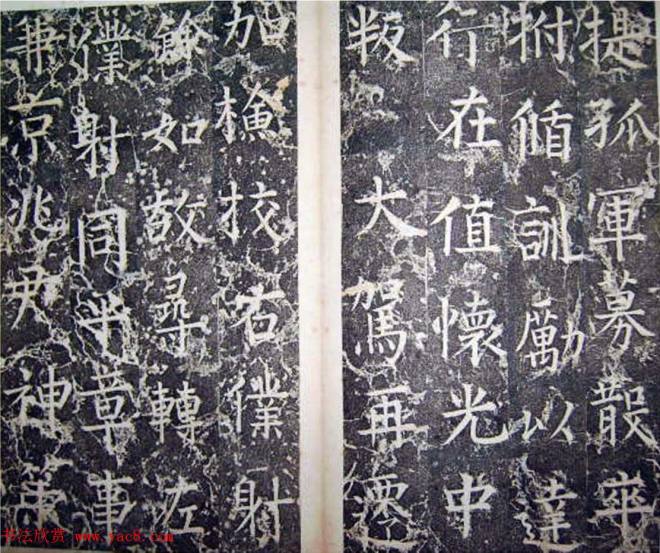 提孤軍募散卒
拊循訓勵以達
行在值懷光中
叛大駕再遷
加檢挍右僕射
餘如故尋轉左
僕射同平章事
兼京兆尹神策
书法欣赏 www.yac8.com